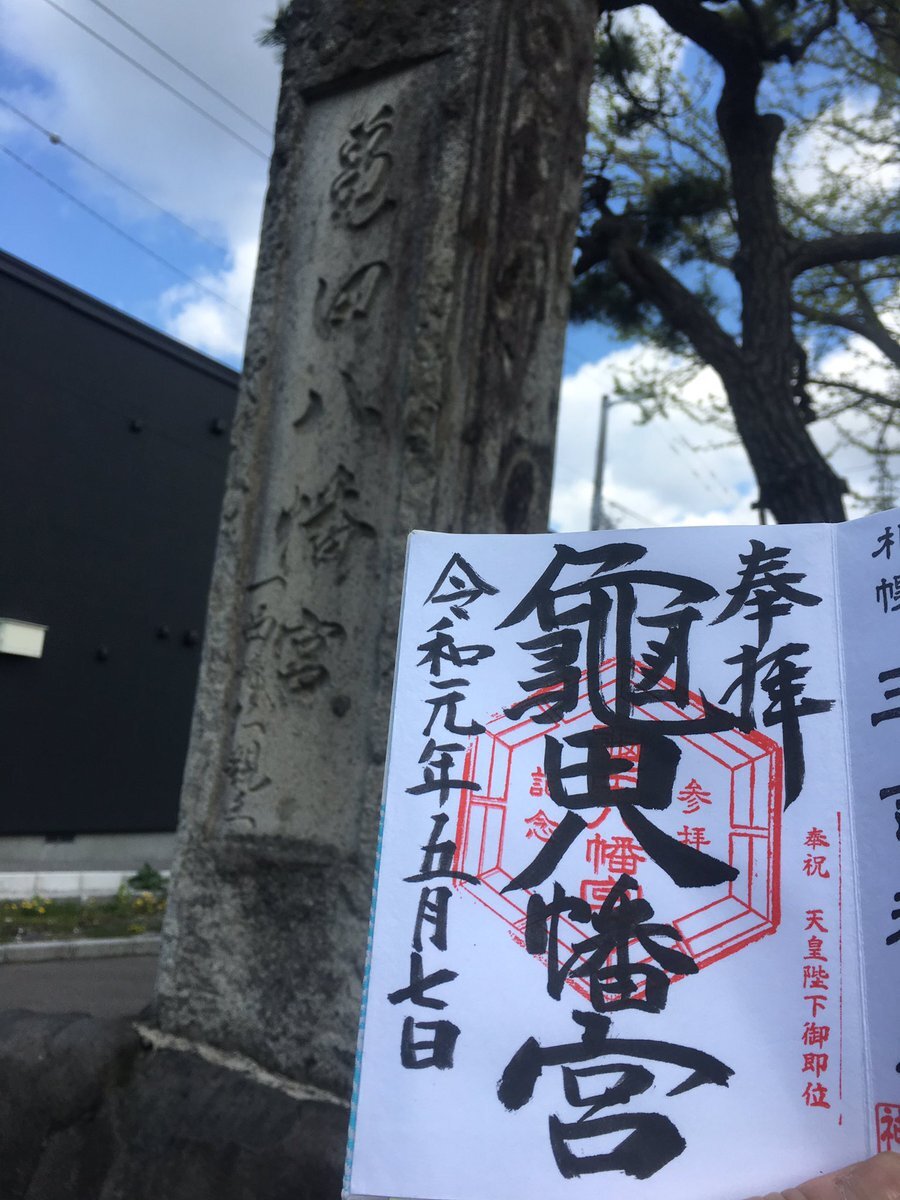 龜田八幡宮
奉拝
龜田八幡宮
令和元年五月七日
参拝
記念
八幡宮
奉祝 天皇陛下御即位
札幌
三